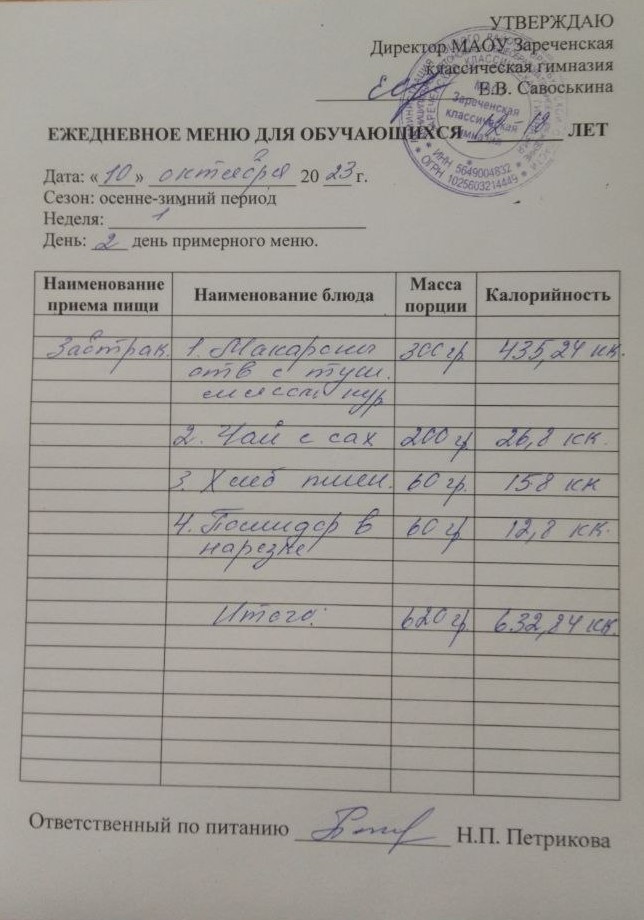 УТВЕРЖДАЮ
Директор МАОУ Зареченская
классическая гимназия
Е.В. Савоськина
Зареченская
классическая
гимназия
ИНН 5649004832
ОГРН 1025603214449
ЕЖЕДНЕВНОЕ МЕНЮ ДЛЯ ОБУЧАЮЩИХСЯ 12-18 ЛЕТ
Дата: «10» октября 20 23 г.
Сезон: осенне-зимний период
Неделя: 1
День: 2 день примерного меню.
Наименование приема пищи Наименование блюда Масса порции Калорийность
Завтрак. 1. Макароны 300 гр 435,24 кк.
отв с туш.
мясом кур
2. Чай с сах 200 гр 26,8 кк.
3. Хлеб пшен. 60 гр. 158 кк
4. Помидор в 60 гр 12,8 кк.
нарезке
Итого: 620 гр. 632,84 кк.
Ответственный по питанию Н.П. Петрикова